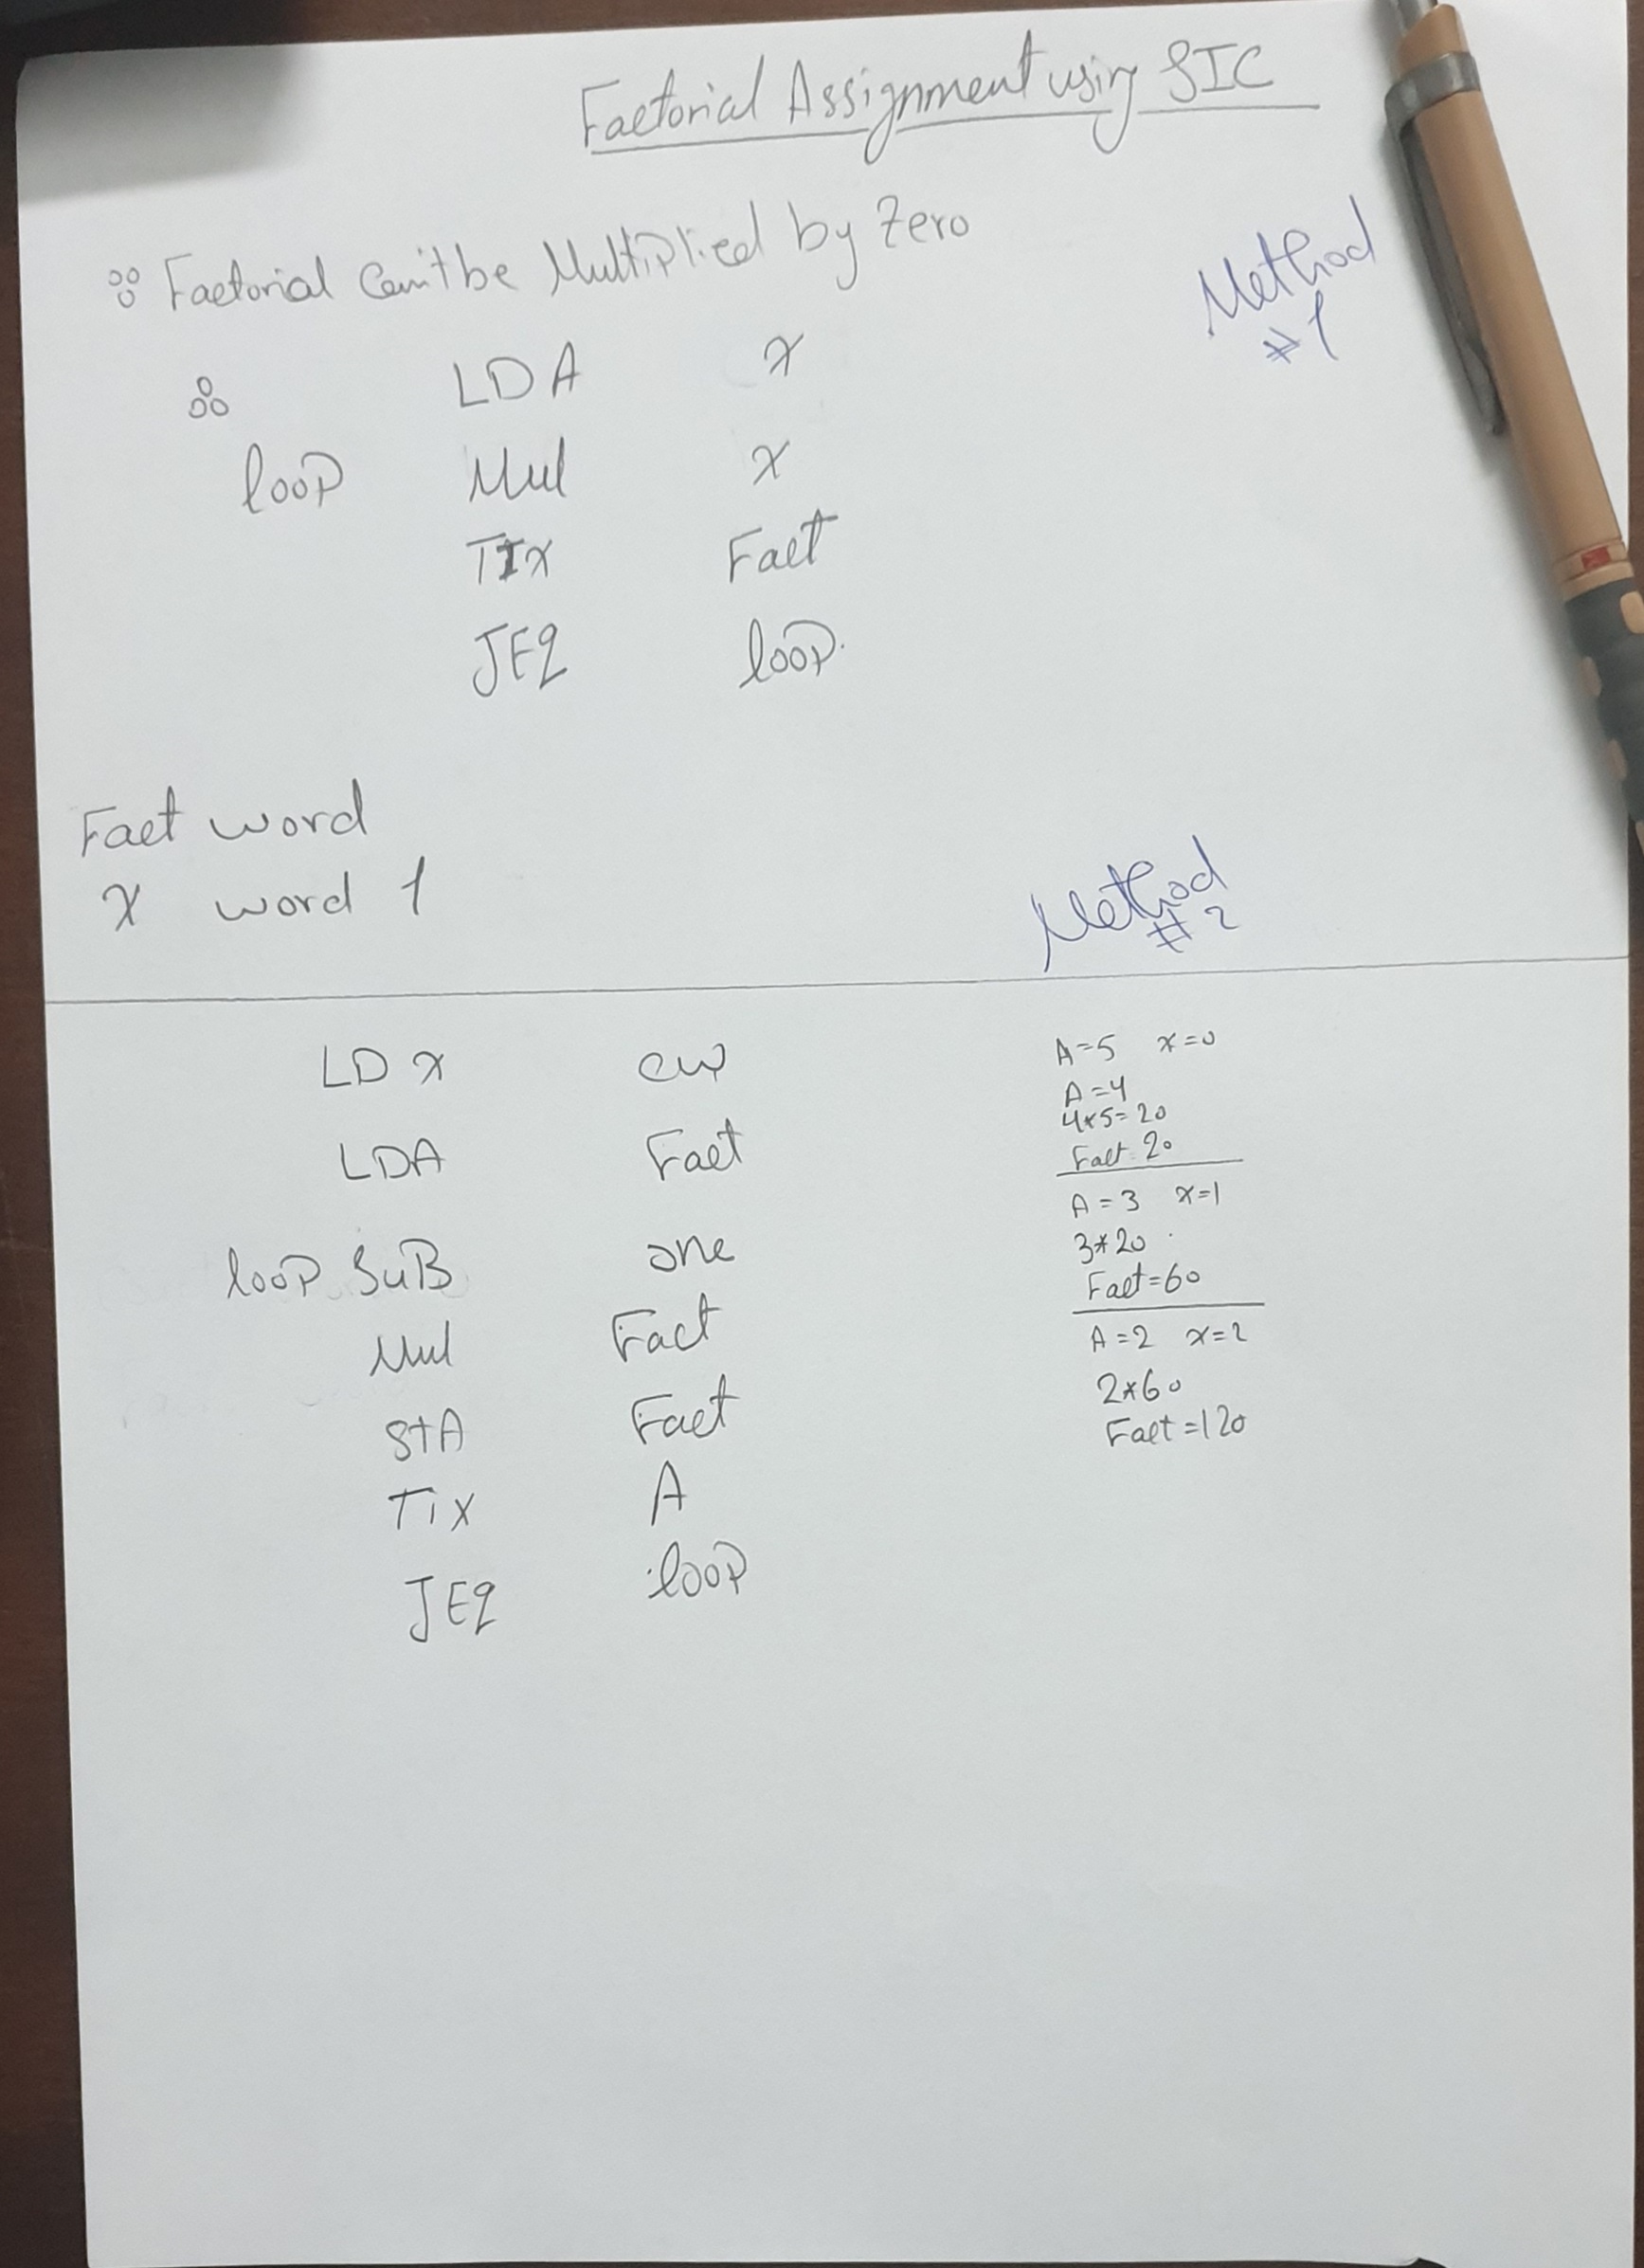 Factorial Assignment using SIC
∵ Factorial Can't be Multiplied by Zero
Method
#1
∴ LDA x
loop Mul x
TIX Fact
JEq loop
Fact word
x word 1
Method
#2
LD x
LDA Fact
loop SuB one
Mul Fact
StA Fact
Tix A
JEq loop
A=5 x=0
A=4
4*5=20
Fact=20
A=3 x=1
3*20
Fact=60
A=2 x=2
2*60
Fact=120